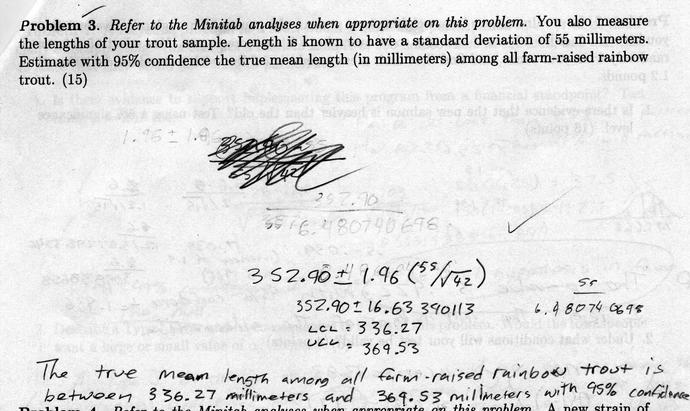 Problem 3. Refer to the Minitab analyses when appropriate on this problem. You also measure
the lengths of your trout sample. Length is known to have a standard deviation of 55 millimeters.
Estimate with 95% confidence the true mean length (in millimeters) among all farm-raised rainbow
trout. (15)
352.90 ± 1.96 (55/√42)
55
352.90 ± 16.63390113
6.480740698
LCL = 336.27
UCL = 369.53
The true mean length among all farm-raised rainbow trout is
between 336.27 millimeters and 369.53 millimeters with 95% confidence
Problem 4. Refer to the Minitab analyses when appropriate on this problem. A new strain of